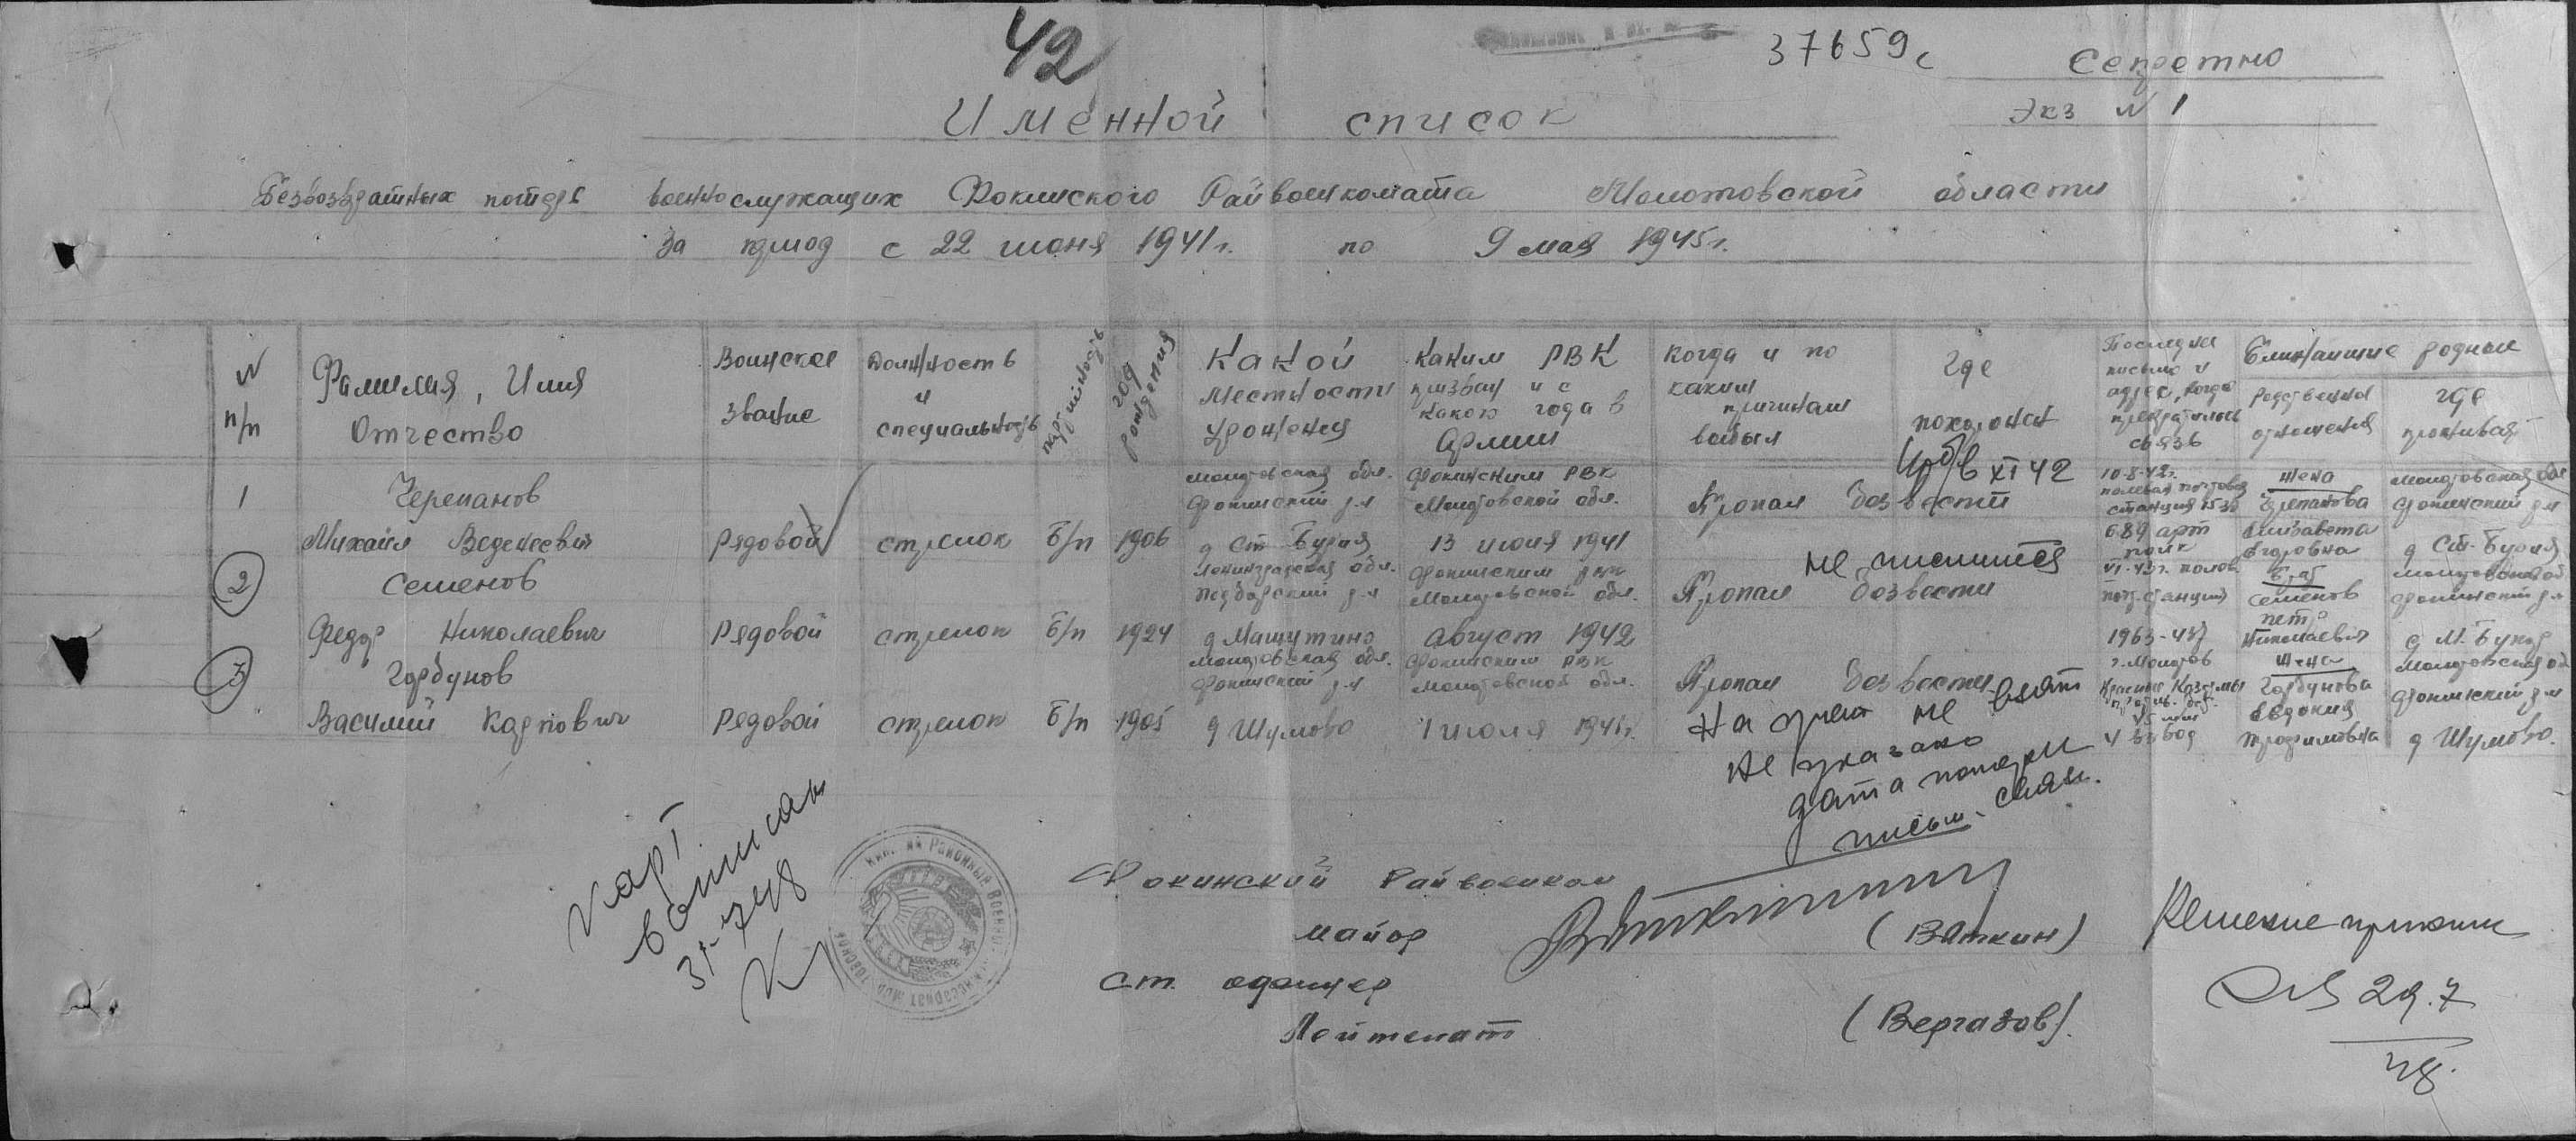 42
37659с
Секретно
Экз N 1
Именной список
Безвозвратных потерь военнослужащих Фокинского Райвоенкомата Молотовской области
За период с 22 июня 1941г. по 9 мая 1945г.
N п/п
Фамилия, Имя Отчество
Воинское звание
Должность и специальность
партийность
год рождения
Какой местности уроженец
Каким РВК призван и с какого года в Армии
Когда и по каким причинам выбыл
Где похоронен
Последнее письмо и адрес, когда прекратилась связь
Ближайшие родные
родственные отношения
где проживает
1 Черепанов Михаил Веденеевич Рядовой стрелок б/п 1906 Молотовская обл. Фокинский р-н д Ст Букая Фокинским РВК Молотовской обл. 13 июля 1941 Пропал без вести XI 42 10-8-42г. полевая почтовая станция 1539 689 арт полк жена Черепанова Елизавета Егоровна Молотовская обл Фокинский р-н д Ст. Букая
2 Семенов Федор Николаевич Рядовой стрелок б/п 1924 Ленинградская обл. р-н д Машутино Фокинским рвк Молотовской обл. август 1942 Пропал без вести не числится VI-43г. полев. поч. станция 1963-48 брат Семенов Петр Николаевич Молотовской об Фокинский р-н д М. Букор
3 Горбунов Василий Карпович Рядовой стрелок б/п 1905 Молотовская обл. Фокинский р-н д Шумово Фокинским РВК Молотовской обл. 1 июля 1941г. Пропал без вести г. Молотов Красные Казармы 4 взвод жена Горбунова Евдокия Трофимовна Молотовская об Фокинский р-н д Шумово.
На учет не взят
Не указано
дата потери
письм. связи.
карт
выписан
31-7-48
Фокинский Райвоенком
майор (Вяткин)
Ст. офицер
Лейтенат (Вергазов).
Решение принял
29.7
48.